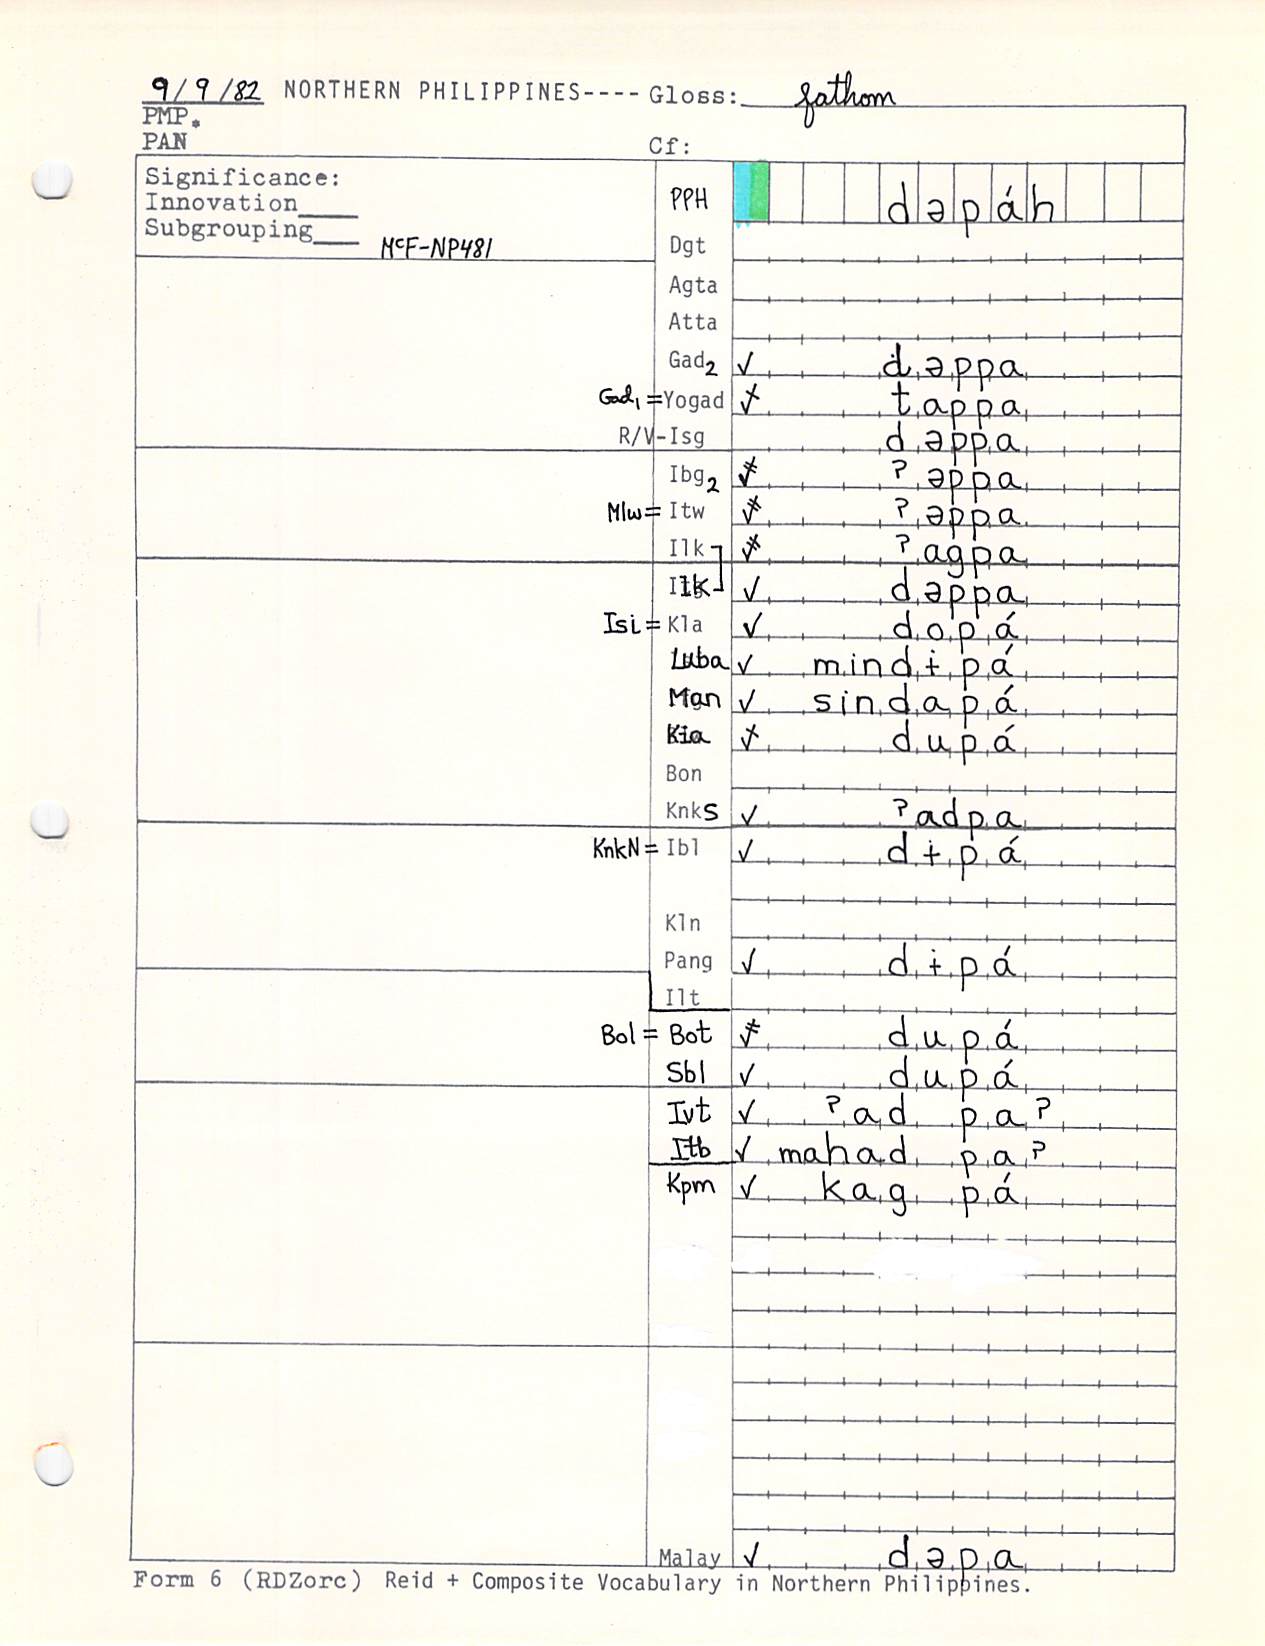 9/9/82 NORTHERN PHILIPPINES---- Gloss: fathom
PMP.
PAN Cf:
Significance:
Innovation____
Subgrouping____ McF-NP481
PPH dəpáh
Dgt
Agta
Atta
Gad2 ✓ dəppa
Gad1 = Yogad ✓ tappa
R/V-Isg dəppa
Ibg2 ✓ ʔəppa
Mlw = Itw ✓ ʔəppa
Ilk ✓ ʔagpa
Ilk ✓ dəppa
Isi = Kla ✓ dopá
Luba ✓ mindɨpá
Man ✓ sindapá
Kia ✓ dupá
Bon
KnkS ✓ ʔadpa
KnkN = Ibl ✓ dɨpá
Kln
Pang ✓ dɨpá
Ilt
Bol = Bot ✓ dupá
Sbl ✓ dupá
Ivt ✓ ʔad paʔ
Itb ✓ mahad paʔ
Kpm ✓ kag pá
Malay ✓ dəpa
Form 6 (RDZorc) Reid + Composite Vocabulary in Northern Philippines.